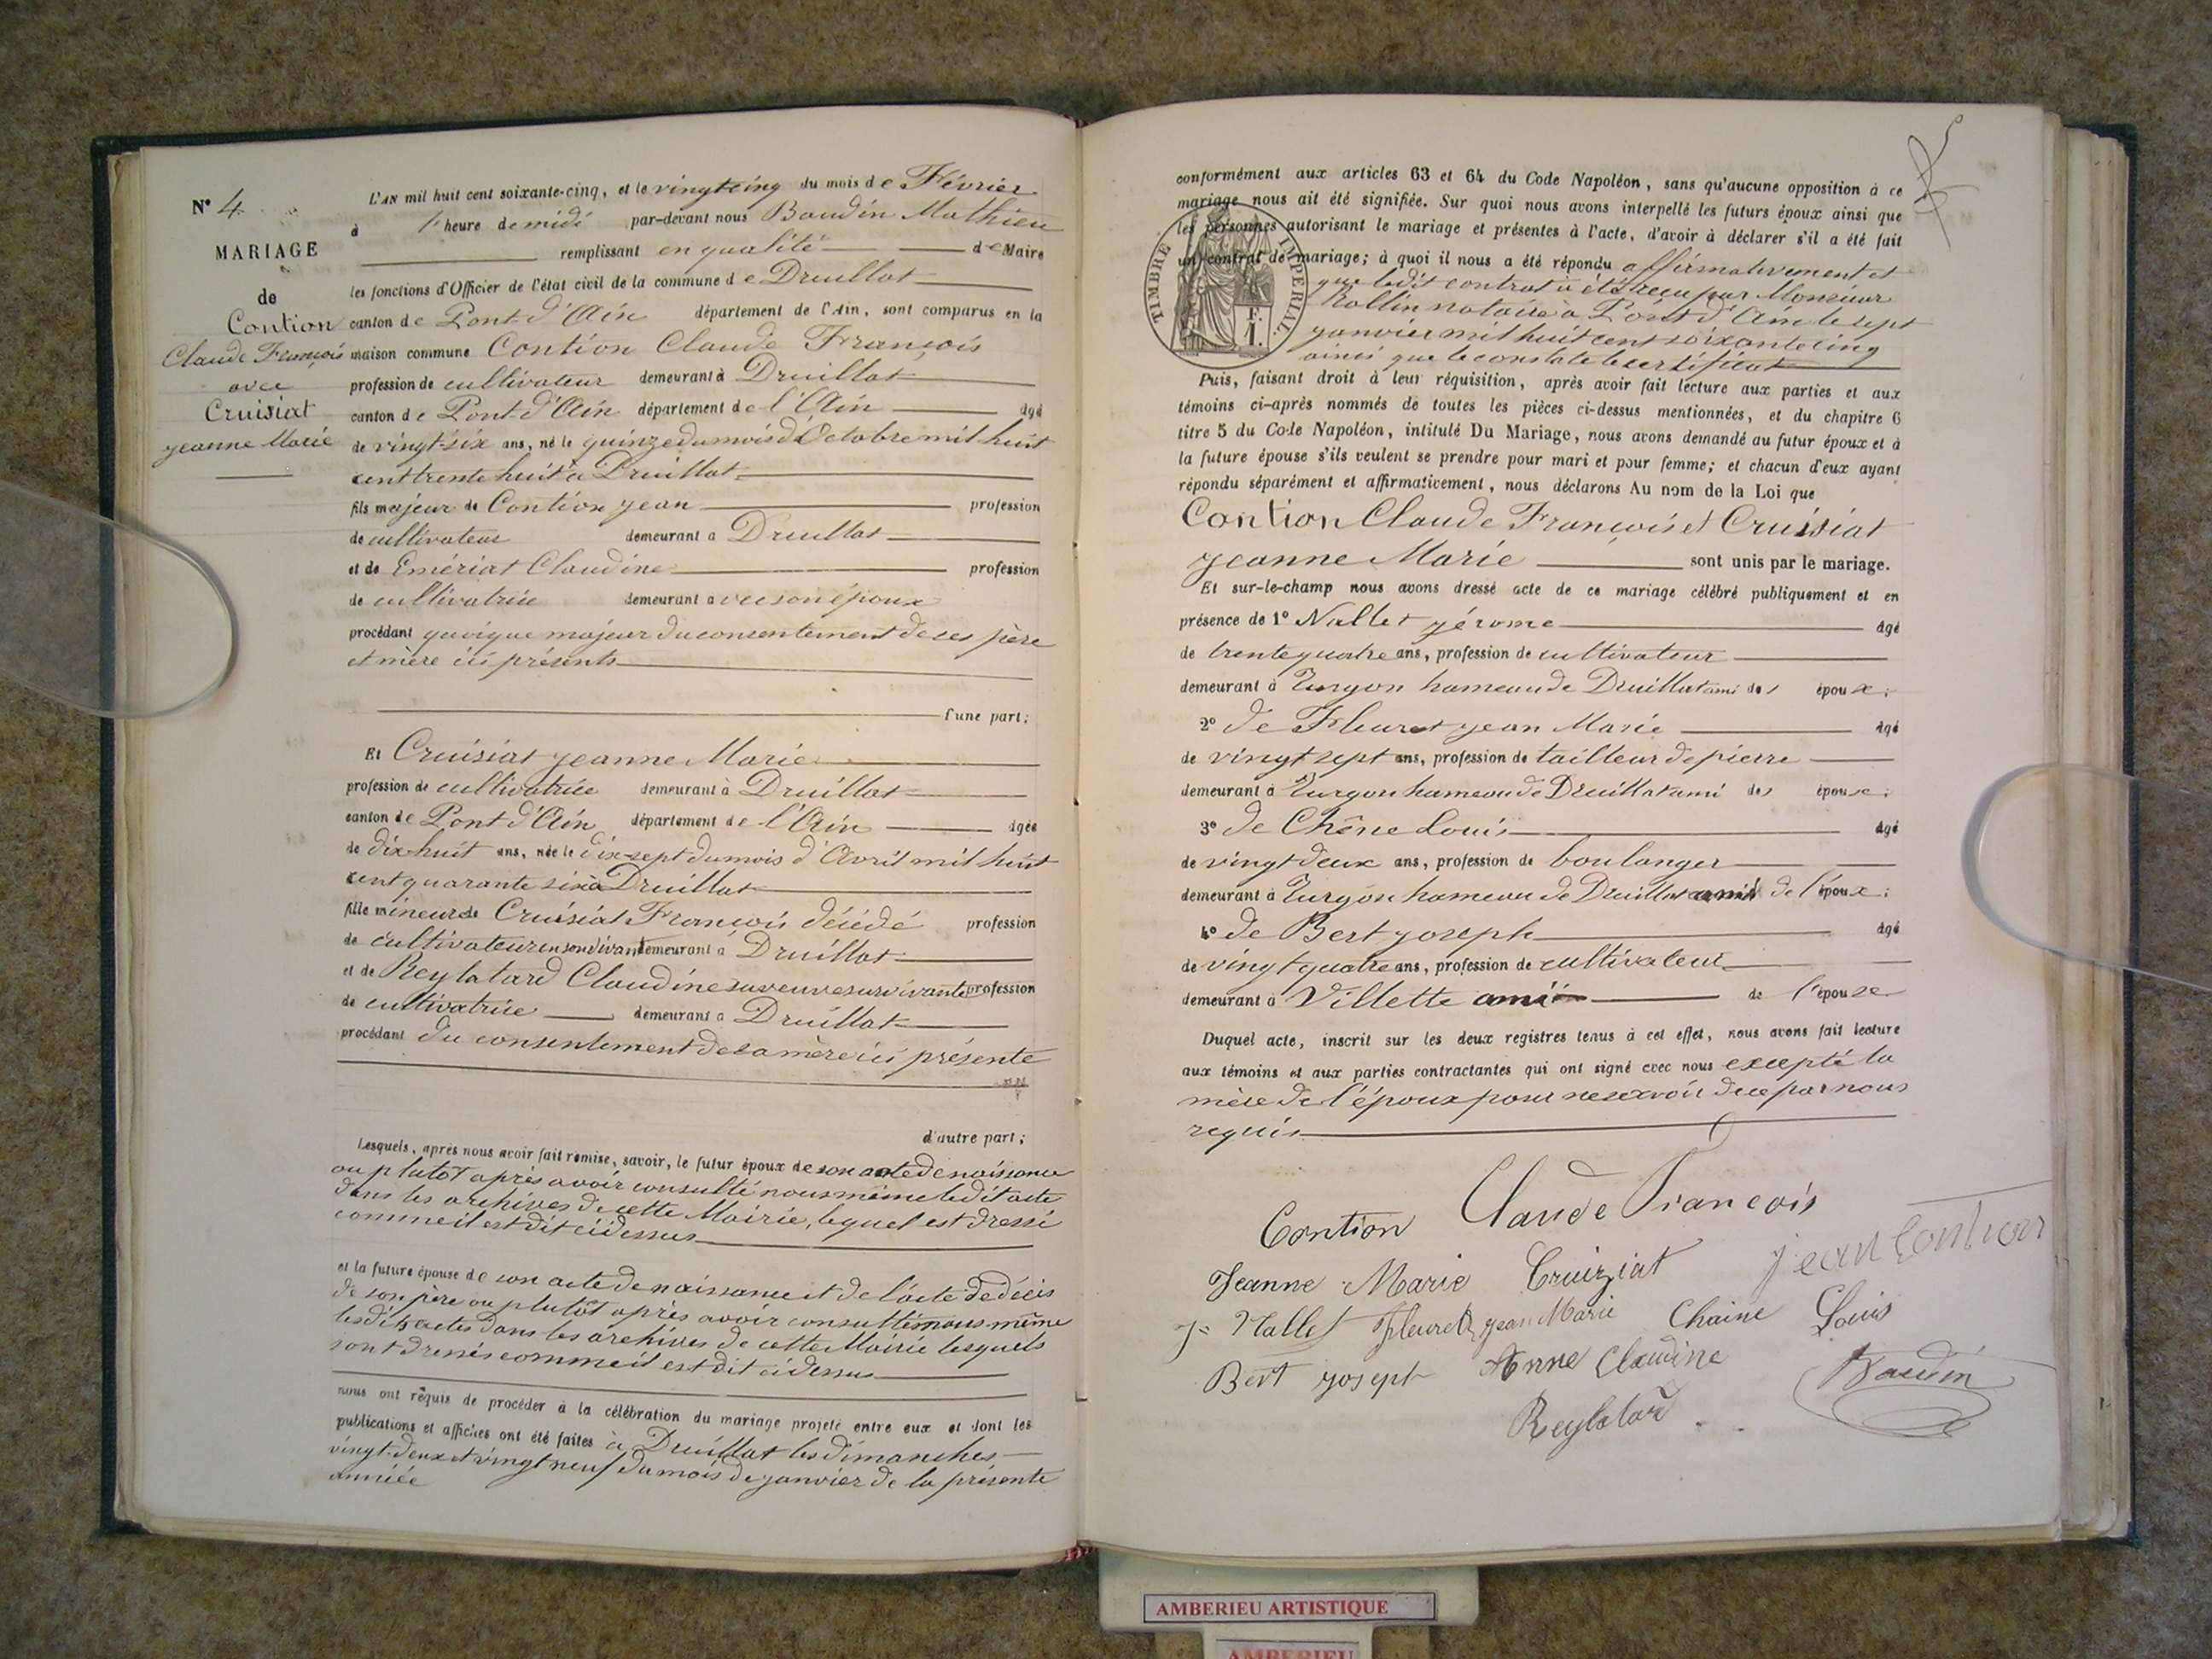 N° 4
MARIAGE
de
Contion
Claude François
avec
Cruisiat
Jeanne Marie
L'AN mil huit cent soixante-cinq, et le vingt cinq du mois de Février
à 1 heure de midi par-devant nous Baudin Mathieu
remplissant en qualité de Maire
les fonctions d'Officier de l'état civil de la commune de Druillat
canton de Pont d'Ain département de l'Ain, sont comparus en la
maison commune Contion Claude François
profession de cultivateur demeurant à Druillat
canton de Pont d'Ain département de l'Ain âgé
de vingt-six ans, né le quinze du mois d'Octobre mil huit
cent trente huit à Druillat
fils majeur de Contion jean profession
de cultivateur demeurant à Druillat
et de Emériat Claudine profession
de cultivatrice demeurant avec son époux
procédant quoique majeur du consentement de ses père
et mère ici présents
l'une part;
Et Cruisiat jeanne Marie
profession de cultivatrice demeurant à Druillat
canton de Pont d'Ain département de l'Ain âgée
de dix huit ans, née le dix sept du mois d'Avril mil huit
cent quarante six à Druillat
fille mineure de Cruisiat François décédé profession
de cultivateur en son vivant demeurant à Druillat
et de Reylatard Claudine sa veuve survivante profession
de cultivatrice demeurant à Druillat
procédant du consentement de sa mère ici présente
d'autre part;
Lesquels, après nous avoir fait remise, savoir, le futur époux de son acte de naissance
ou plutôt après avoir consulté nous même ledit acte
dans les archives de cette Mairie, lequel est dressé
comme il est dit ci dessus
et la future épouse de son acte de naissance et de l'acte de décès
de son père ou plutôt après avoir consulté nous même
lesdits actes dans les archives de cette Mairie lesquels
sont dressés comme il est dit ci dessus
nous ont requis de procéder à la célébration du mariage projeté entre eux et dont les
publications et affiches ont été faites à Druillat les dimanches
vingt-deux et vingt neuf du mois de janvier de la présente
année
conformément aux articles 63 et 64 du Code Napoléon, sans qu'aucune opposition à ce
mariage nous ait été signifiée. Sur quoi nous avons interpellé les futurs époux ainsi que
les personnes autorisant le mariage et présentes à l'acte, d'avoir à déclarer s'il a été fait
un contrat de mariage; à quoi il nous a été répondu affirmativement et
que ledit contrat a été reçu par Monsieur
Rollin notaire à Pont d'Ain le sept
janvier mil huit cent soixante cinq
ainsi que le constate le certificat
TIMBRE IMPERIAL
F.
1.
Puis, faisant droit à leur réquisition, après avoir fait lecture aux parties et aux
témoins ci-après nommés de toutes les pièces ci-dessus mentionnées, et du chapitre 6
titre 5 du Code Napoléon, intitulé Du Mariage, nous avons demandé au futur époux et à
la future épouse s'ils veulent se prendre pour mari et pour femme; et chacun d'eux ayant
répondu séparément et affirmativement, nous déclarons Au nom de la Loi que
Contion Claude François et Cruisiat
jeanne Marie sont unis par le mariage.
Et sur-le-champ nous avons dressé acte de ce mariage célébré publiquement et en
présence de 1° Nallet jérome âgé
de trente quatre ans, profession de cultivateur
demeurant à Turgon hameau de Druillat ami des époux;
2° de Fleuret jean Marie âgé
de vingt sept ans, profession de tailleur de pierre
demeurant à Turgon hameau de Druillat ami des époux;
3° de Chêne Louis âgé
de vingt deux ans, profession de boulanger
demeurant à Turgon hameau de Druillat ami de l'époux;
4° de Bert joseph âgé
de vingt quatre ans, profession de cultivateur
demeurant à Villette ami de l'épouse
Duquel acte, inscrit sur les deux registres tenus à cet effet, nous avons fait lecture
aux témoins et aux parties contractantes qui ont signé avec nous excepté la
mère de l'époux pour ne savoir de ce par nous
requis
Contion Claude François
Jeanne Marie Cruiziat jean Contion
j= Nallet fleuret jean Marie Chaine Louis
Bert joseph Anne Claudine Baudin
Reylatard
AMBERIEU ARTISTIQUE
AMBERIEU